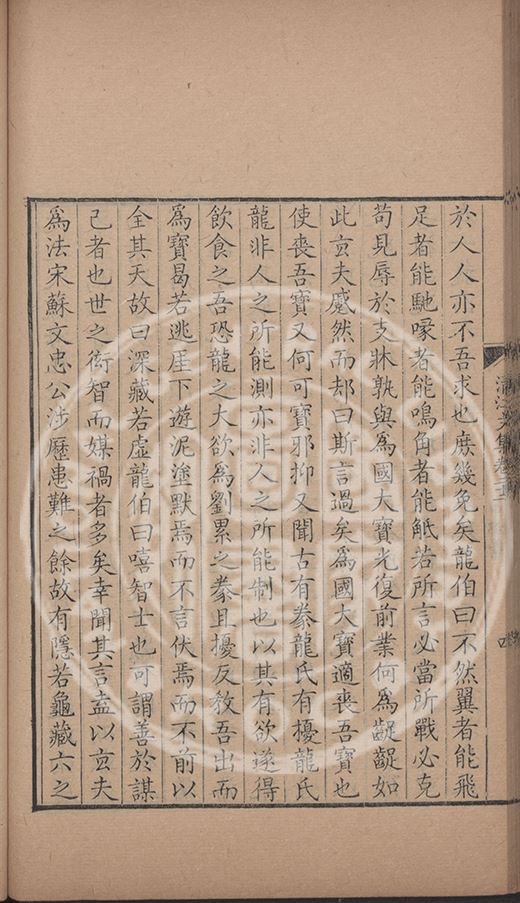 於人人亦不吾求也庶幾免矣龍伯曰不然翼者能飛
足者能馳喙者能鳴角者能觝若所言必當所戰必克
苟見辱於支牀孰與為國大寶光復前業何為齪齪如
此玄夫蹙然而却曰斯言過矣為國大寶適喪吾寶也
使喪吾寶又何可寶邪抑又聞古有豢龍氏有擾龍氏
龍非人之所能測亦非人之所能制也以其有欲遂得
飲食之吾恐龍之大欲為劉累之豢且擾反教吾出而
為寶曷若逃厓下遊泥塗默焉而不言伏焉而不前以
全其天故曰深藏若虛龍伯曰嘻智士也可謂善於謀
己者也世之衒智而媒禍者多矣幸聞其言盍以玄夫
為法宋蘇文忠公涉歷患難之餘故有隱若龜藏六之